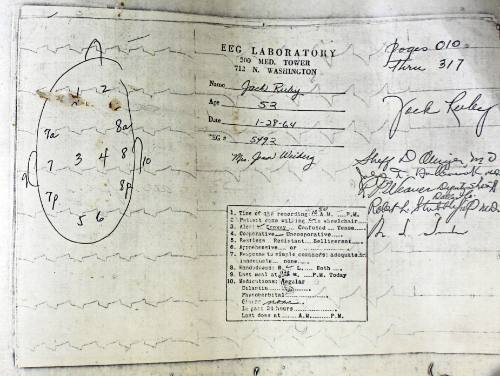 EEG LABORATORY
200 MED. TOWER
712 N. WASHINGTON
Name Jack Ruby
Age 53
Date 1-28-64
EEG # 5492
Mrs. Jean
pages 010
thru 317
Jack Ruby
M.D.
Robert L. M.D.
1 2
7a 8a
7 3 4 8
9 10
7p 8p
5 6
1. Time of the recording A.M. P.M.
2. Patient came walking wheelchair
3. Alert Drowsy Confused Tense
4. Cooperative Uncooperative
5. Restless Resistant Belligerent
6. Apprehensive or
7. Response to simple commands: adequate
inadequate none
8. Handedness: R. L. Both
9. Last meal at M. P.M. Today
10. Medications: Regular
Dilantin
Phenobarbital
Other none
in past 24 hours
Last dose at A.M. P.M.